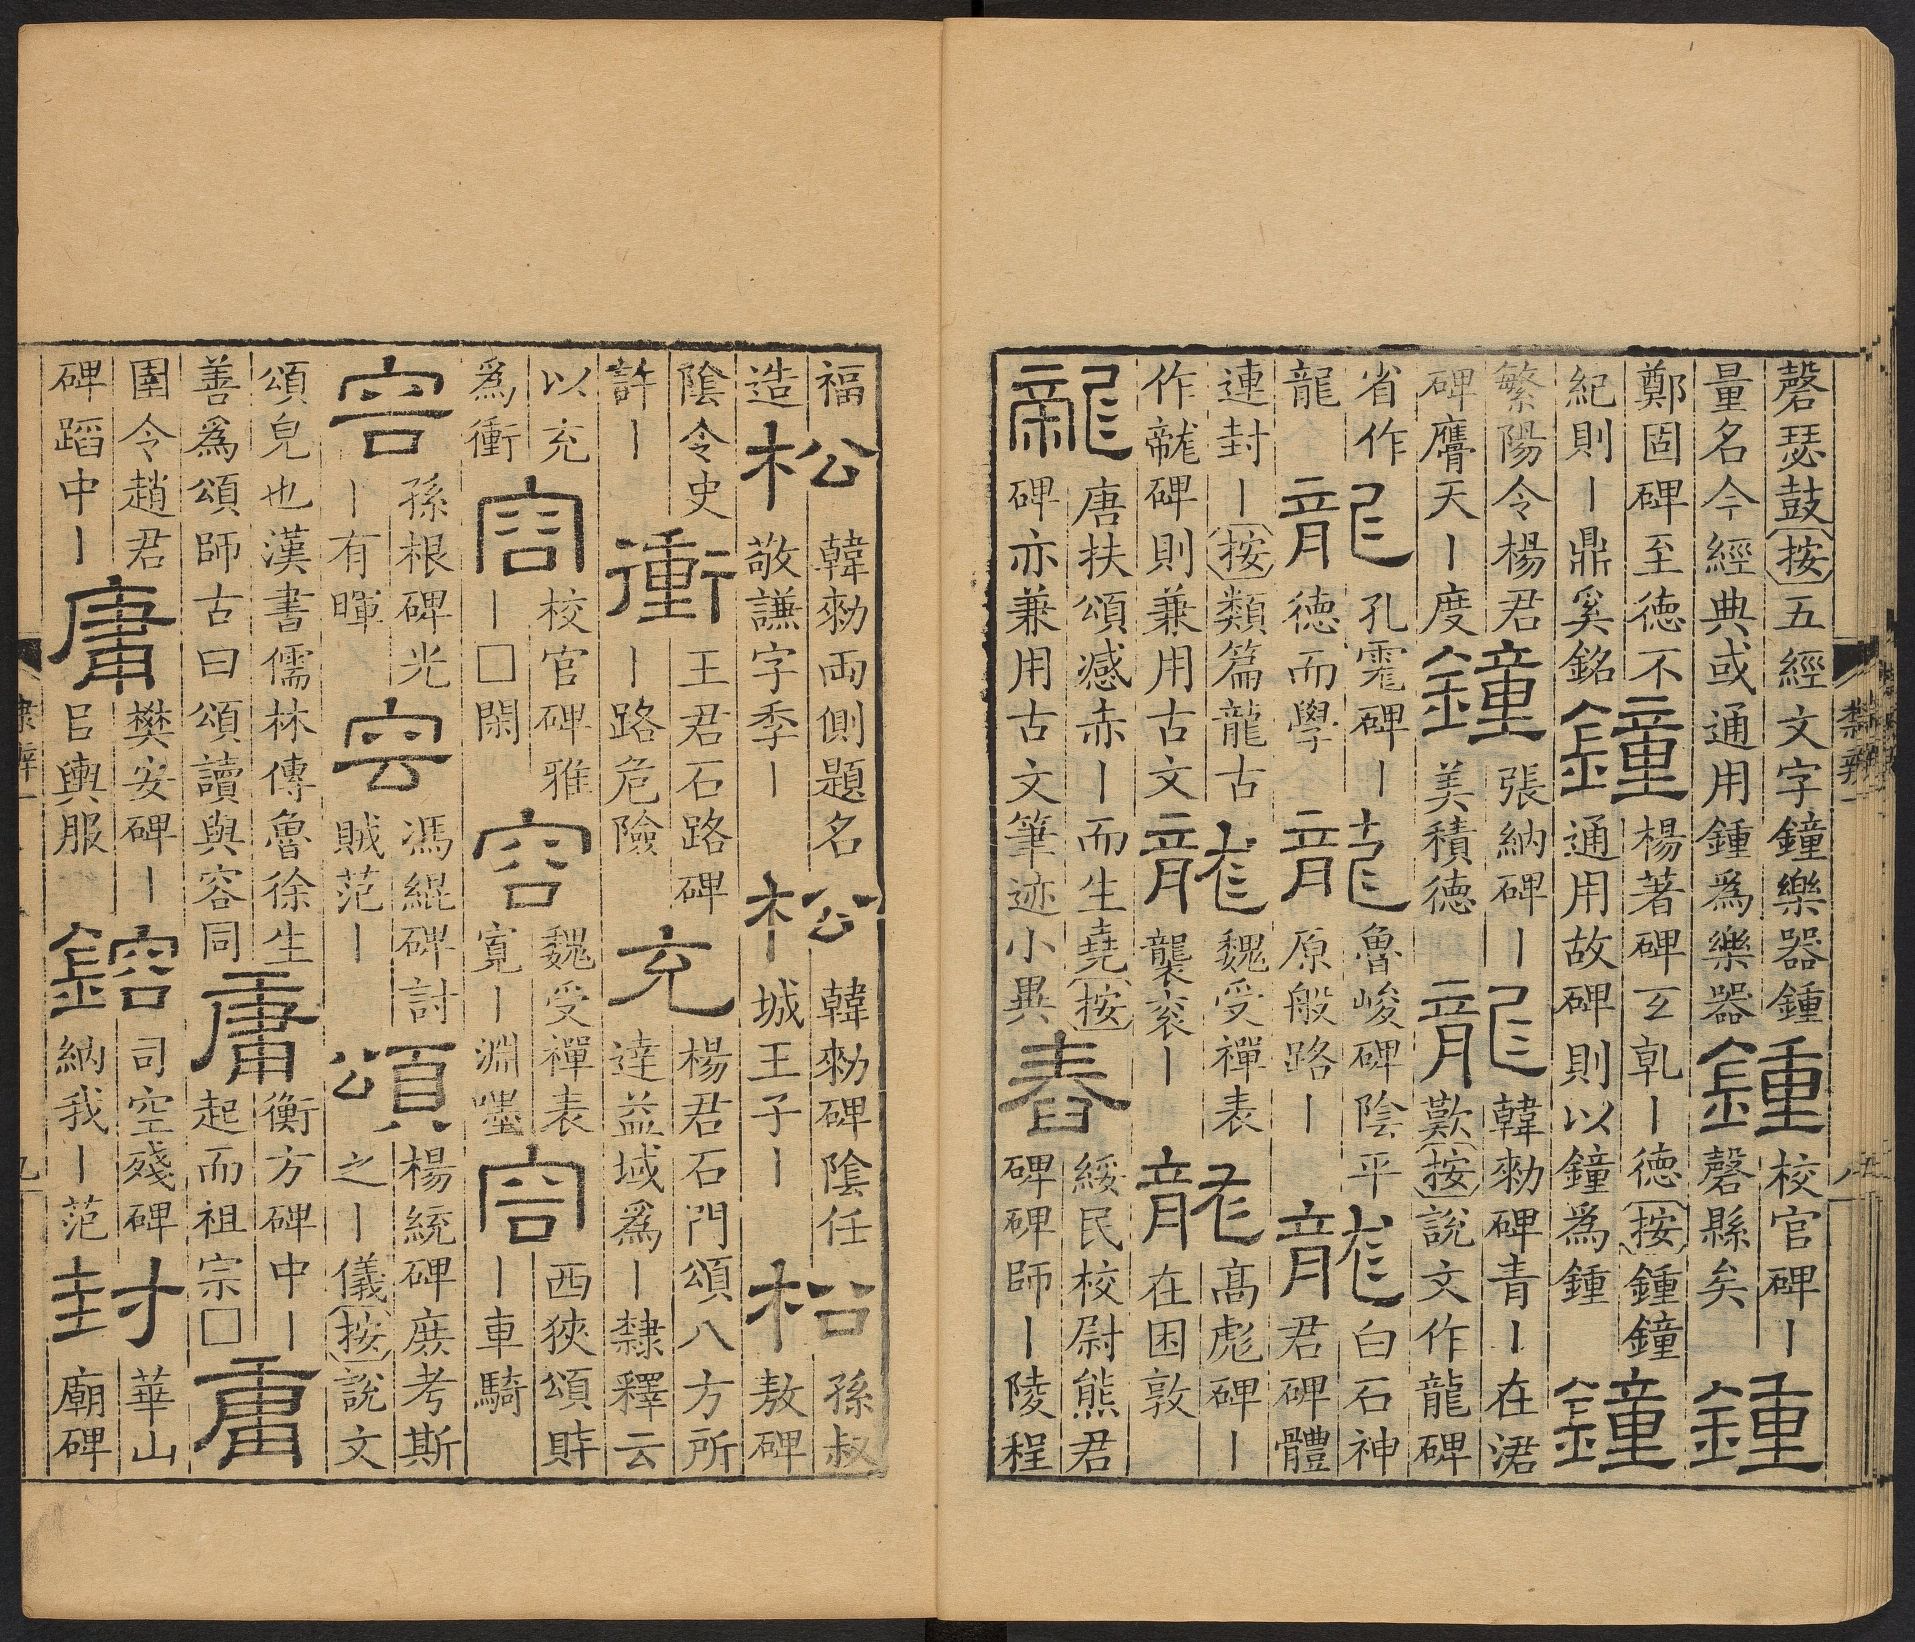 磬瑟鼓按五經文字鐘樂器鍾
量名今經典或通用鍾爲樂器
鍾
校官碑丨
磬縣矣
鍾
鄭固碑至徳不
紀則丨鼎奚銘
鐘
楊著碑乹丨徳按鍾鐘
通用故碑則以鐘爲鍾
鐘
繁陽令楊君
碑膺天丨度
鐘
張納碑丨
美積徳
龍
韓勑碑青丨在涒
歎按說文作龍碑
省作
龍
龍
孔霓碑丨
徳而學
龍
魯峻碑陰平
原般路丨
龍
白石神
君碑體
連封丨按類篇龍古
作碑則兼用古文
龍
魏受禪表
襲衮丨
龍
高彪碑丨
在困敦
龍
唐扶頌感赤丨而生堯按
碑亦兼用古文筆迹小異
舂
綏民校尉熊君
碑碑師丨陵程
福
造
松
韓勑兩側題名
敬謙字季丨
松
韓勑碑陰任
城王子丨
松
孫叔
敖碑
陰令史
許丨
衝
王君石路碑
丨路危險
充
楊君石門頌八方所
達益域爲丨隸釋云
以充
爲衝
容
校官碑雅
丨□閑
容
魏受禪表
寬丨淵嘿
容
西狹頌
丨車騎
容
孫根碑光
丨有暉
容
馮緄碑討
賊范丨
頌
楊統碑庶考斯
之丨儀按說文
頌皃也漢書儒林傳魯徐生
善爲頌師古曰頌讀與容同
庸
衡方碑中丨
起而祖宗□
庸
圉令趙君
碑蹈中丨
庸
樊安碑丨
㠯輿服
鎔
司空殘碑
納我丨范
封
華山
廟碑
隸辨一
九